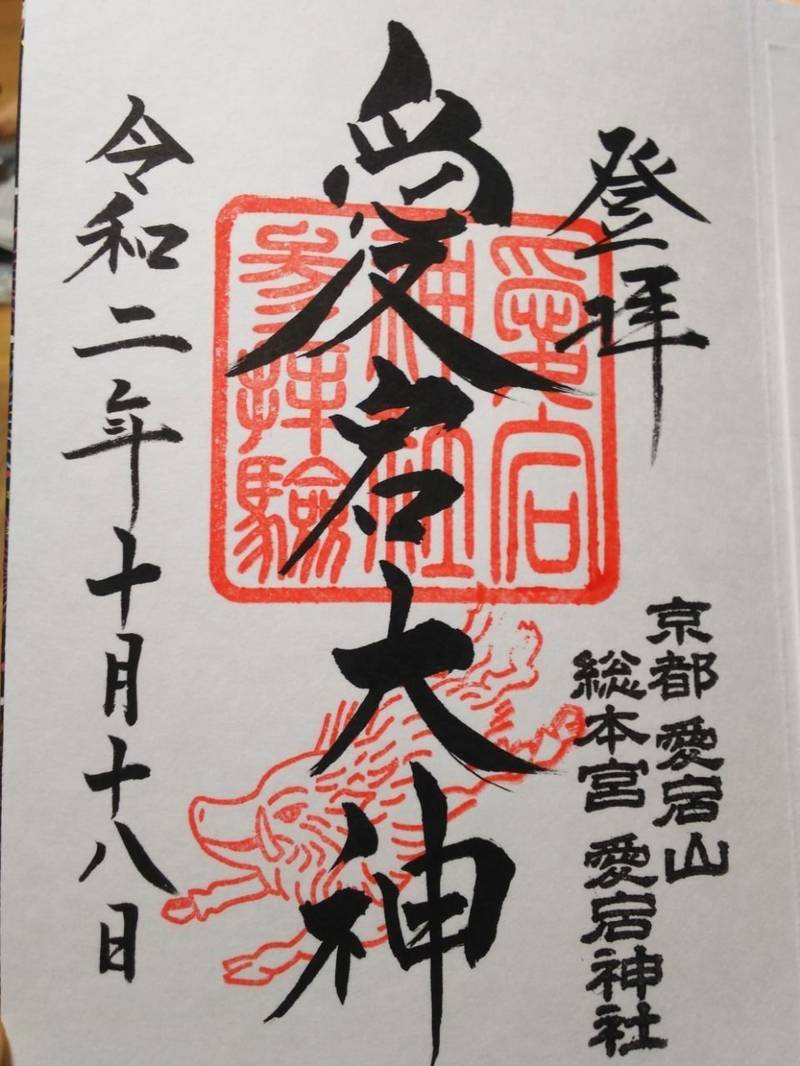 登拝
京都 愛宕山
総本宮 愛宕神社
愛宕大神
愛宕
神社
参拝験
令和二年十月十八日